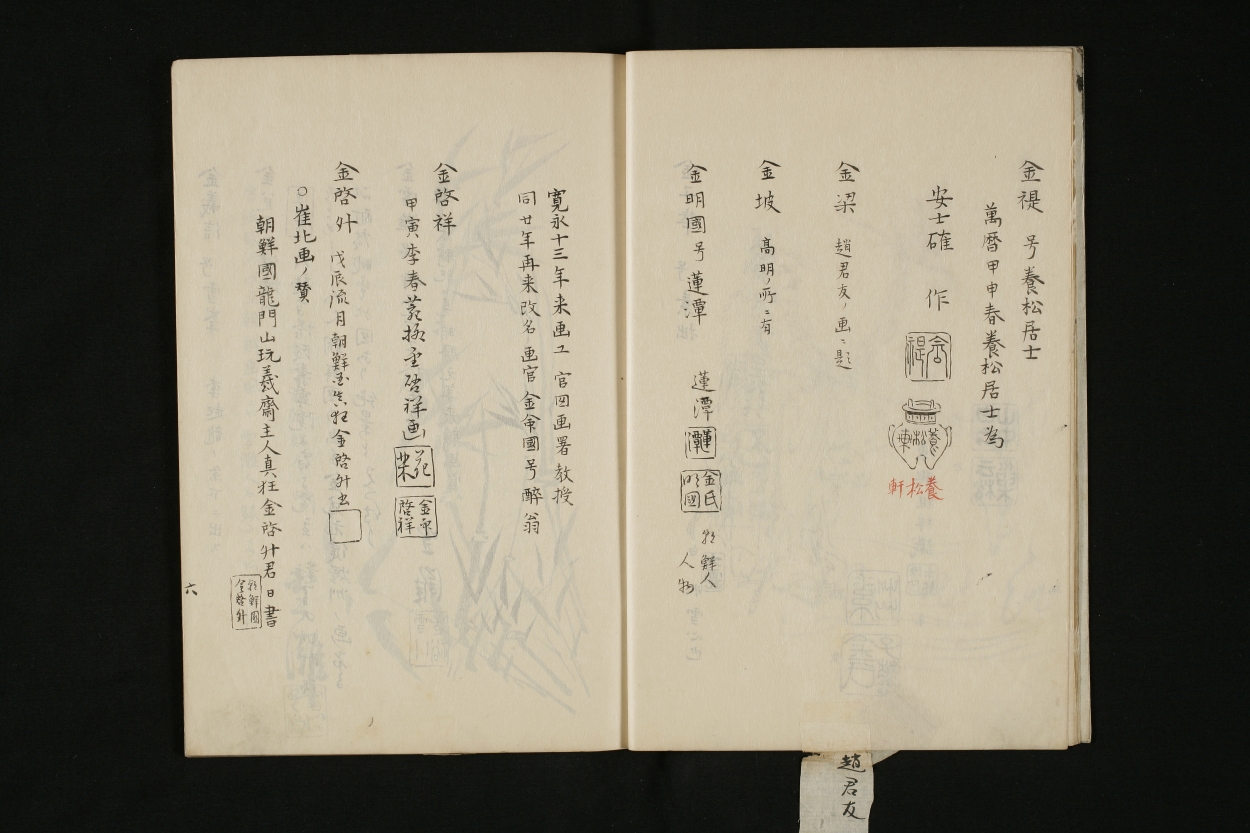 金禔 号養松居士
萬暦甲申春養松居士為
安士確 作
金禔
養松軒
金梁 趙君友ノ画ニ題
金坡 高明ノ所ニ有
金明國 号蓮潭
蓮潭
蓮潭
金氏明國
朝鮮人
人物
趙君友
寛永十三年来画工 官図画署教授
同廿年再来改名 画官 金命國号醉翁
金啓祥
甲寅李春 啓祥画
金啓升 戊辰流月朝鮮 狂金啓升
○崔北画ノ賛
朝鮮國龍門山玩羲齋主人真狂金啓升君日書
朝鮮國金啓升
六